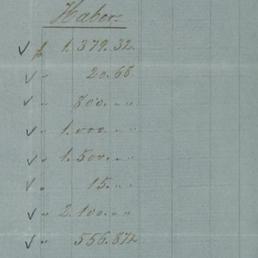 Haber.
✓ $ 1.379.32
✓ " 20.68
✓ " 800. " "
✓ " 1.000 " "
✓ " 1.500. " "
✓ " 15. " "
✓ " 2.100. " "
✓ " 556.87½